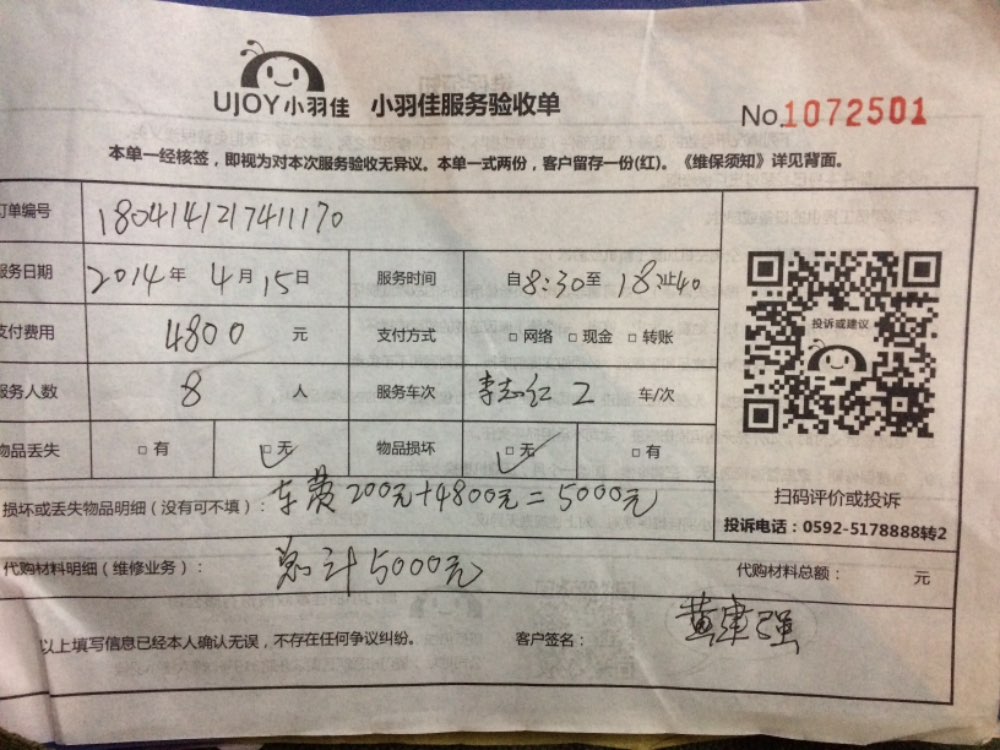 UJOY小羽佳 小羽佳服务验收单
No.1072501
本单一经核签，即视为对本次服务验收无异议。本单一式两份，客户留存一份(红)。《维保须知》详见背面。
订单编号 180414121741170
服务日期 2014年 4月 15日 服务时间 自8:30至 18:40止
支付费用 4800 元 支付方式 □ 网络 □ 现金 □ 转账
服务人数 8 人 服务车次 李志红 2 车/次
物品丢失 □ 有 □ 无 物品损坏 □ 无 □ 有
投诉或建议
损坏或丢失物品明细（没有可不填）： 车费200元+4800元=5000元
扫码评价或投诉
投诉电话：0592-5178888转2
代购材料明细（维修业务）： 总计5000元 代购材料总额： 元
以上填写信息已经本人确认无误，不存在任何争议纠纷。 客户签名： 黄建强